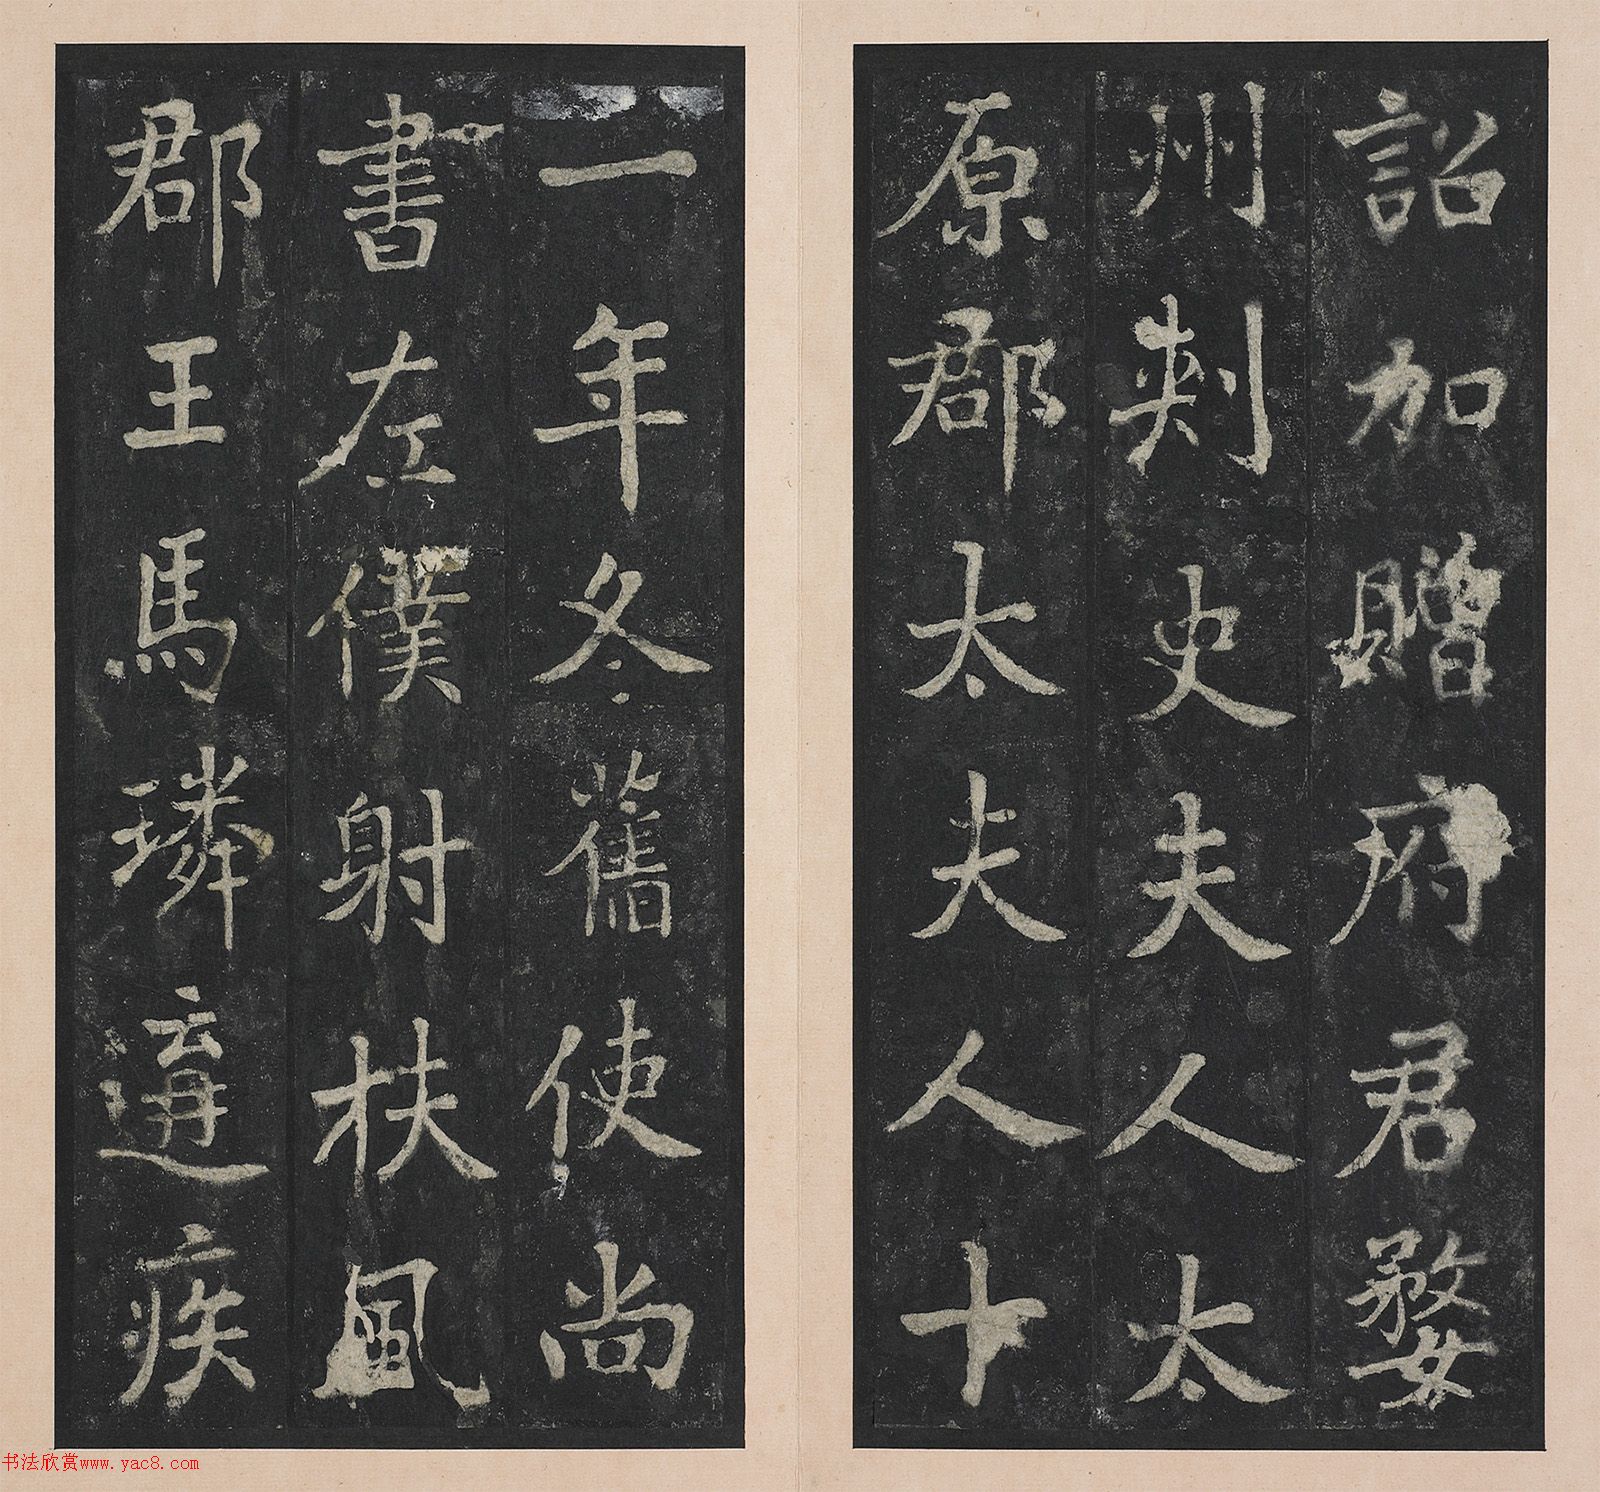 詔加贈府君婺
州刺史夫人太
原郡太夫人十
一年冬舊使尚
書左僕射扶風
郡王馬璘遘疾
书法欣赏www.yac8.com